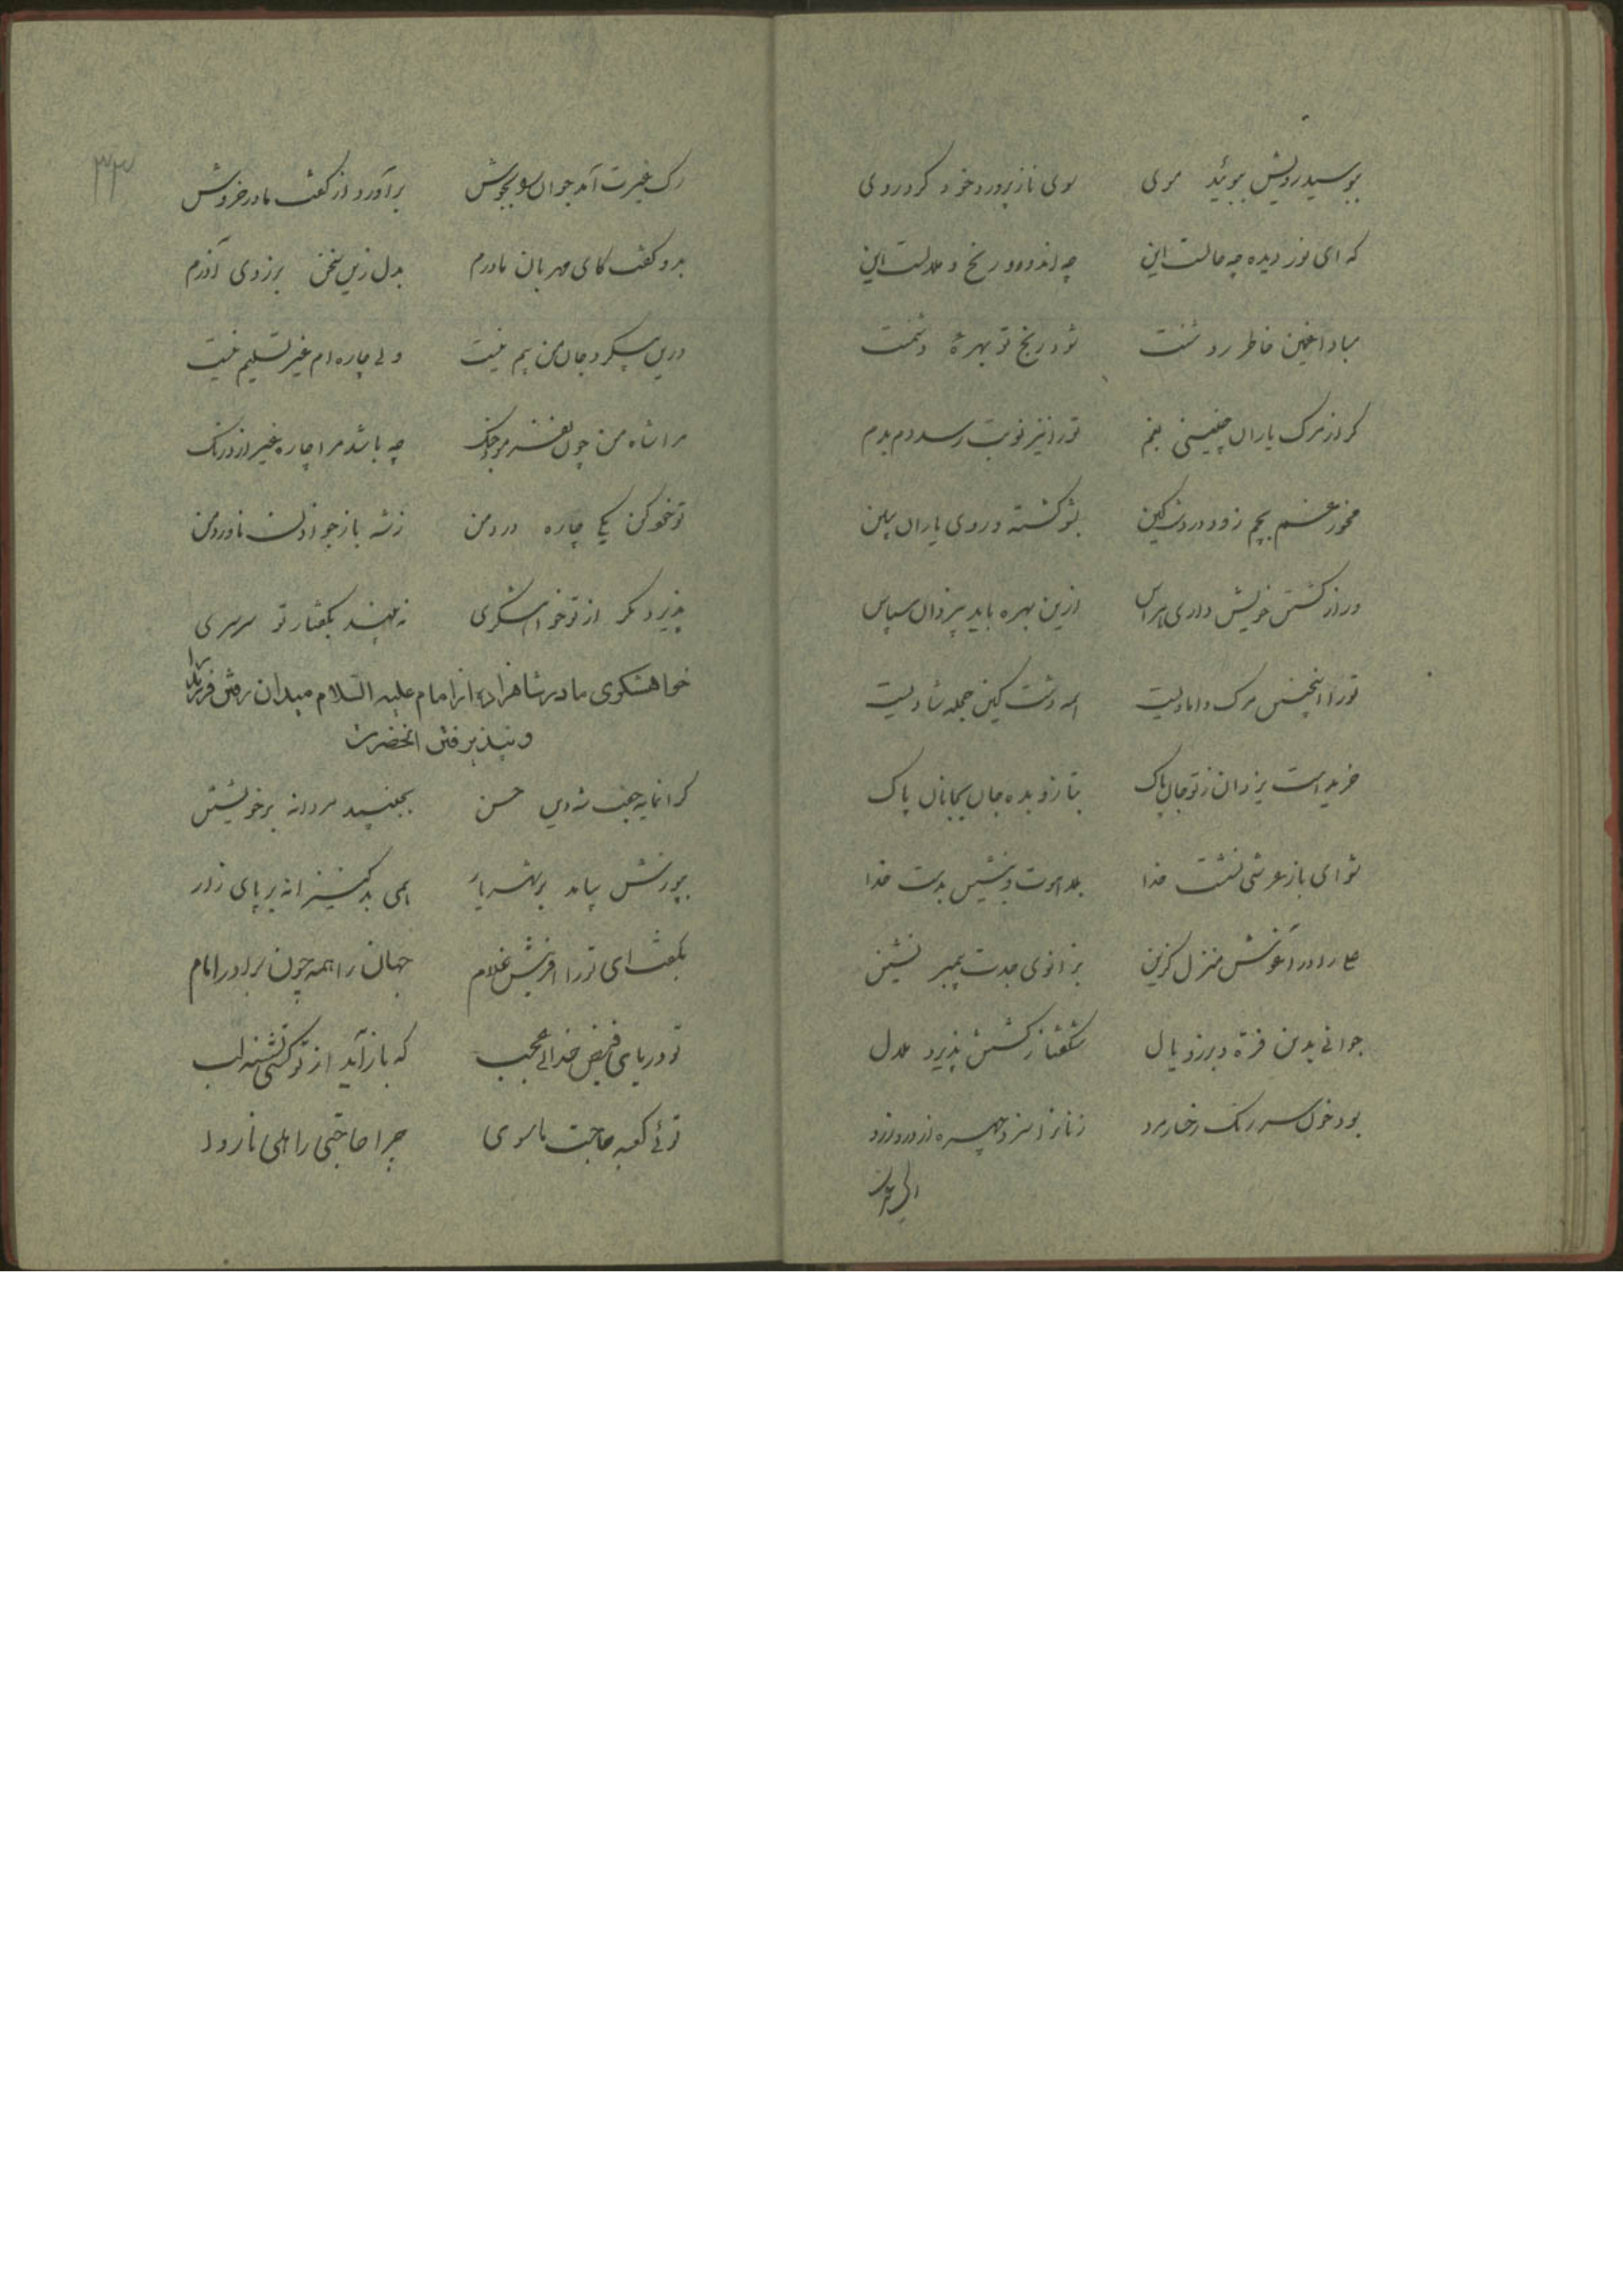 ببوسید رویش ببوئید موی سوی ناز پرورد خود کرد روی
که ای نور دیده چه حالست این چه اندوه و رنج و ملالست این
مبادا غمین خاطر روشنت شود رنج تو بهرهٔ دشمنت
گر از مرگ یاران چنینی بغم تو را نیز نوبت رسد دم بدم
مخور غم بچم زود در دشت کین بشو کشته و روی یاران ببین
ور از کشتن خویش داری هراس ازین بهره باید بیزدان سپاس
تو را اینچنین مرگ دامادیست همه دشت کین حجله شادیست
خریده است یزدان ز تو جان پاک بتاز و بده جان بجانان پاک
تو ای باز عرشی نشست خدا بدست خدا
علی را در آغوش منزل گزین بزانوی جدت پیمبر نشین
جوانی بدین فره و برز و یال شگفتا ز کشتن پذیرد ملال
بود خون سر رنگ رخسار مرد زنانرا سزد چهره از درد زرد
رگ غیرت آمد جوان را بجوش برآورد از گفت مادر خروش
بدو گفت کای مهربان مادرم بدل زین سخن برزدی آذرم
درین پیکر و جان من بیم نیست ولی چاره ام غیر تسلیم نیست
مرا شاه من چون نفرستد بجنگ چه باشد مرا چاره بغیر از درنگ
تو خود کن یکی چاره درد من ز شه باز جو اذن ناورد من
پذیرد مگر از تو خواهشگری نه بیند بگفتار تو سرسری
خواهشگری مادر شاهزاده از امام علیه السلام میدان رفتن فرزند را
و نپذیرفتن آنحضرت
گرانمایه جفت شه دین حسن بجنبید مردانه بر خویشتن
بپوزش بیامد بر شهریار همی بد کنیزانه بر پای زار
بگفت ای تو را آفرینش غلام جهان را همه چون برادر امام
تو دریای فیض خدائی عجب که باز آید از تو کسی تشنه لب
توئی کعبه حاجت ماسوی چرا حاجتی را هلی ناروا
۳۳